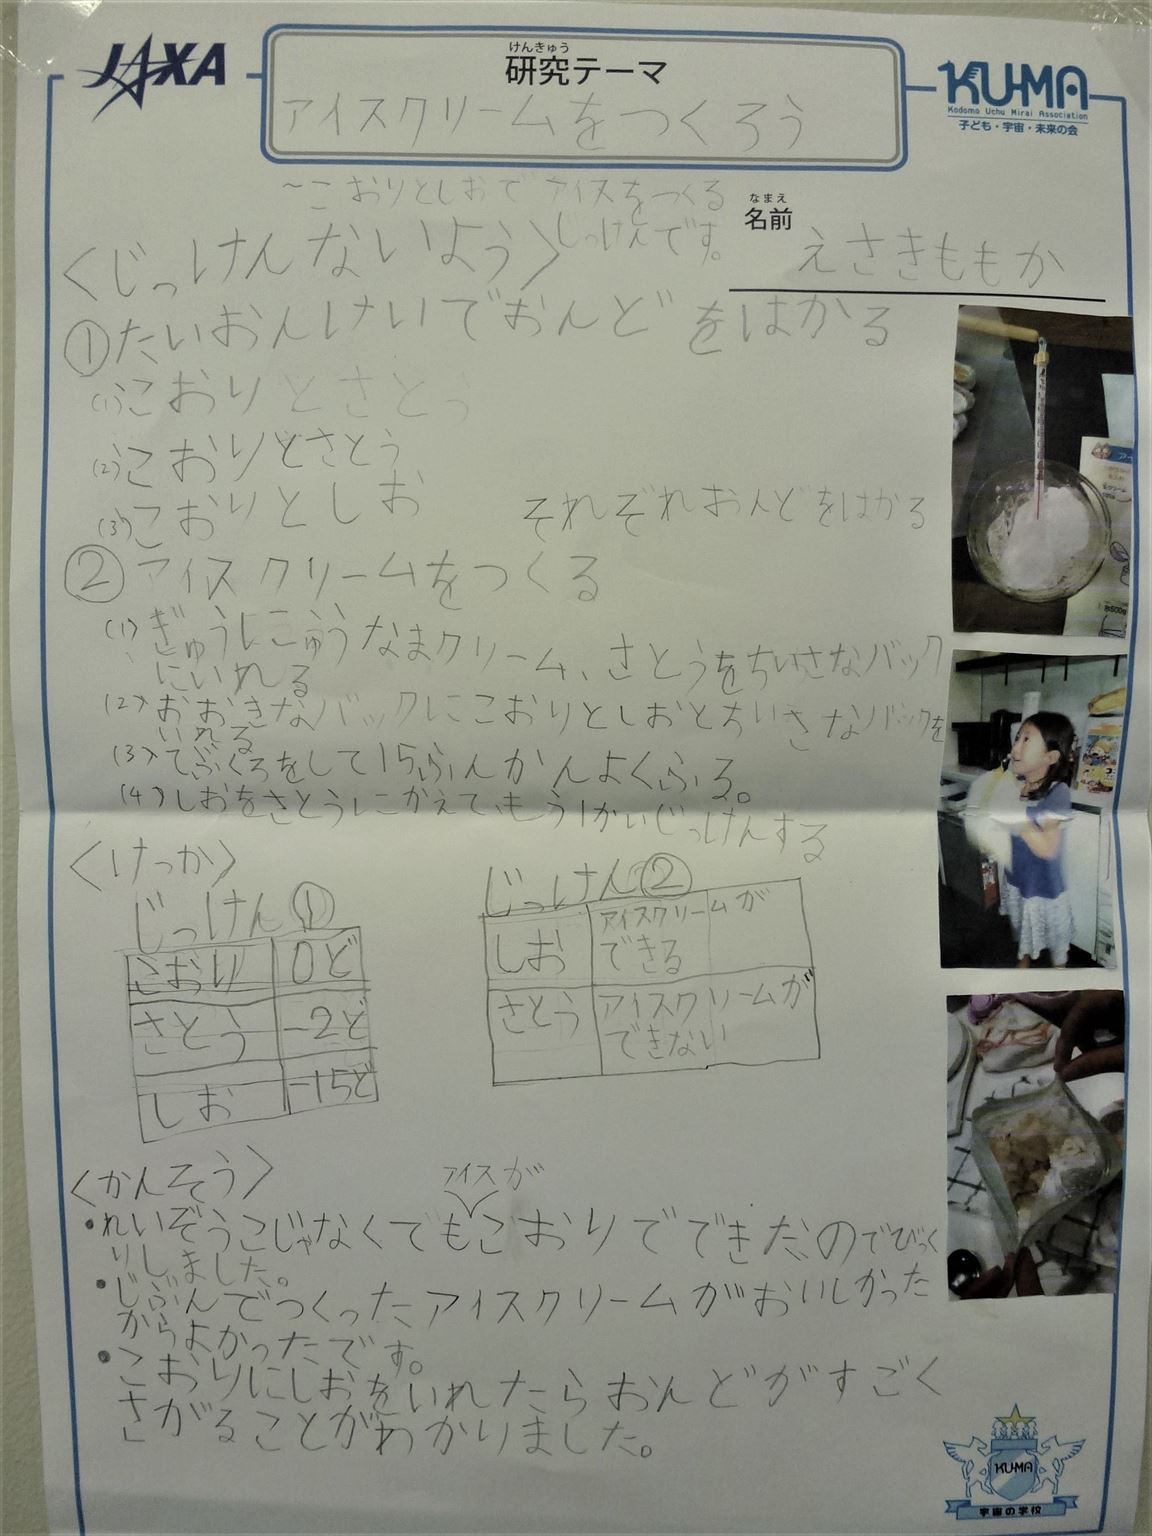 JAXA
けんきゅう
研究テーマ
アイスクリームをつくろう
KU-MA
Kodomo Uchu Mirai Association
子ども・宇宙・未来の会
~こおりとしおでアイスをつくる
じっけんです。
なまえ
名前
えさきももか
〈じっけんないよう〉
①たいおんけいでおんどをはかる
(1)こおりとさとう
(2)こおりとさとう
(3)こおりとしお
それぞれおんどをはかる
②アイスクリームをつくる
(1)ぎゅうにゅうなまクリーム、さとうをちいさなバック
にいれる
(2)おおきなバックにこおりとしおとちいさなバックを
いれる
(3)てぶくろをして15ふんかんよくふる。
(4)しおをさとうにかえて、もう1かいじっけんする
〈けっか〉
じっけん①
こおり 0ど
さとう -2ど
しお -15ど
じっけん②
しお アイスクリームが
できる
さとう アイスクリームが
できない
〈かんそう〉
アイスが
・れいぞうこじゃなくてもこおりでできたのでびっく
りしました。
・じぶんでつくったアイスクリームがおいしかった
からよかったです。
・こおりにしおをいれたらおんどがすごく
さがることがわかりました。
KU-MA
宇宙の学校